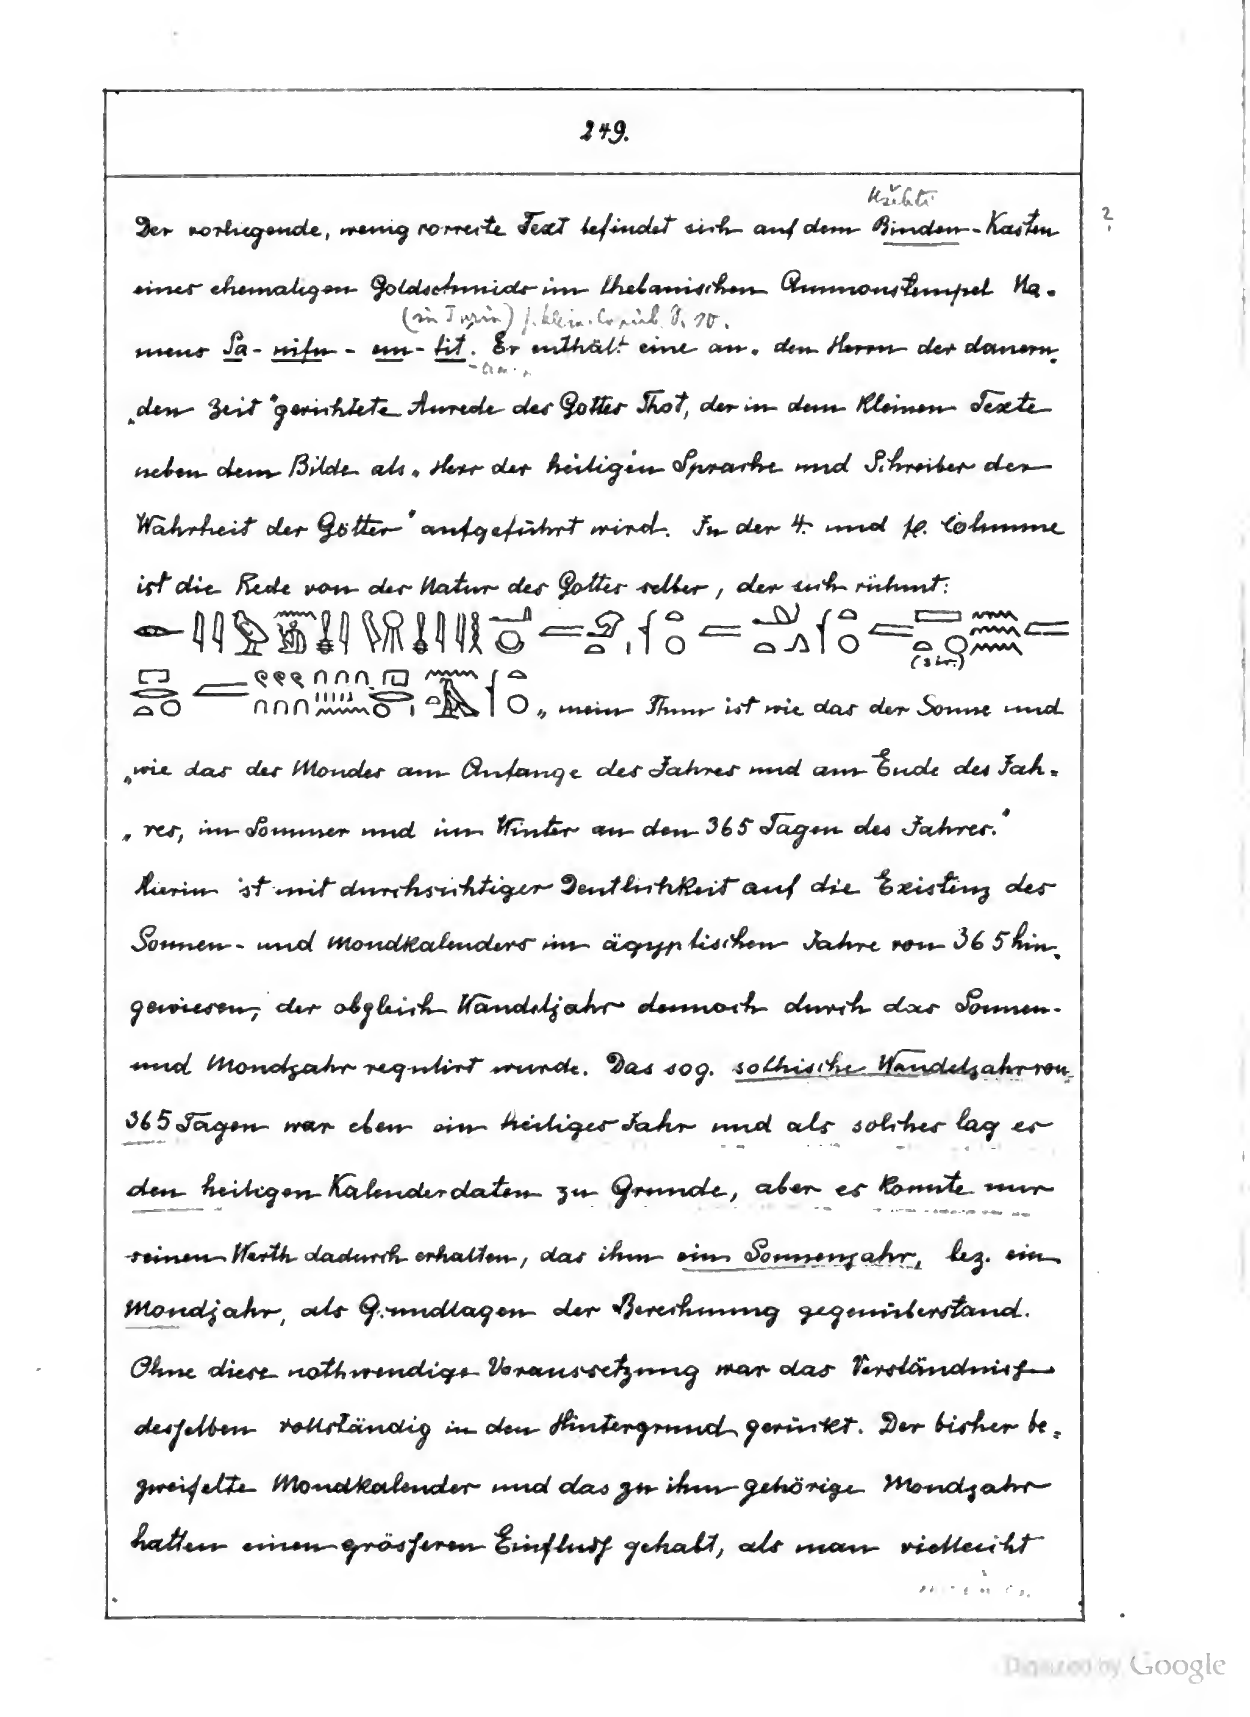 249.
Der vorliegende, wenig correcte Text befindet sich auf dem Binden-Kasten
?
eines ehemaligen Goldschmids im thebanischen Ammonstempel Na-
(in Turin)
mens Sa-nifu-em-tit. Er enthält eine an „den Herrn der dauern-
„den Zeit" gerichtete Anrede des Gottes Thot, der in dem kleinen Texte
neben dem Bilde als „Herr der heiligen Sprache und Schreiber der
Wahrheit der Götter" aufgeführt wird. In der 4. und fl. Columne
ist die Rede von der Natur des Gottes selber, der sich rühmt:
(sic)
„mein Thun ist wie das der Sonne und
„wie das des Mondes am Anfange des Jahres und am Ende des Jah-
„res, im Sommer und im Winter an den 365 Tagen des Jahres."
Hierin ist mit durchsichtiger Deutlichkeit auf die Existenz des
Sonnen- und Mondkalenders im ägyptischen Jahre von 365 hin-
gewiesen, der obgleich Wandeljahr dennoch durch das Sonnen-
und Mondjahr regulirt wurde. Das sog. sothische Wandeljahr von
365 Tagen war eben ein heiliges Jahr und als solches lag es
den heiligen Kalenderdaten zu Grunde, aber es konnte nur
seinen Werth dadurch erhalten, das ihm ein Sonnenjahr, bez. ein
Mondjahr, als Grundlagen der Berechnung gegenüberstand.
Ohne diese nothwendige Voraussetzung war das Verständniss
desselben vollständig in den Hintergrund gerückt. Der bisher be-
zweifelte Mondkalender und das zu ihm gehörige Mondjahr
hatten einen grösseren Einfluss gehabt, als man vielleicht
Digitized by Google